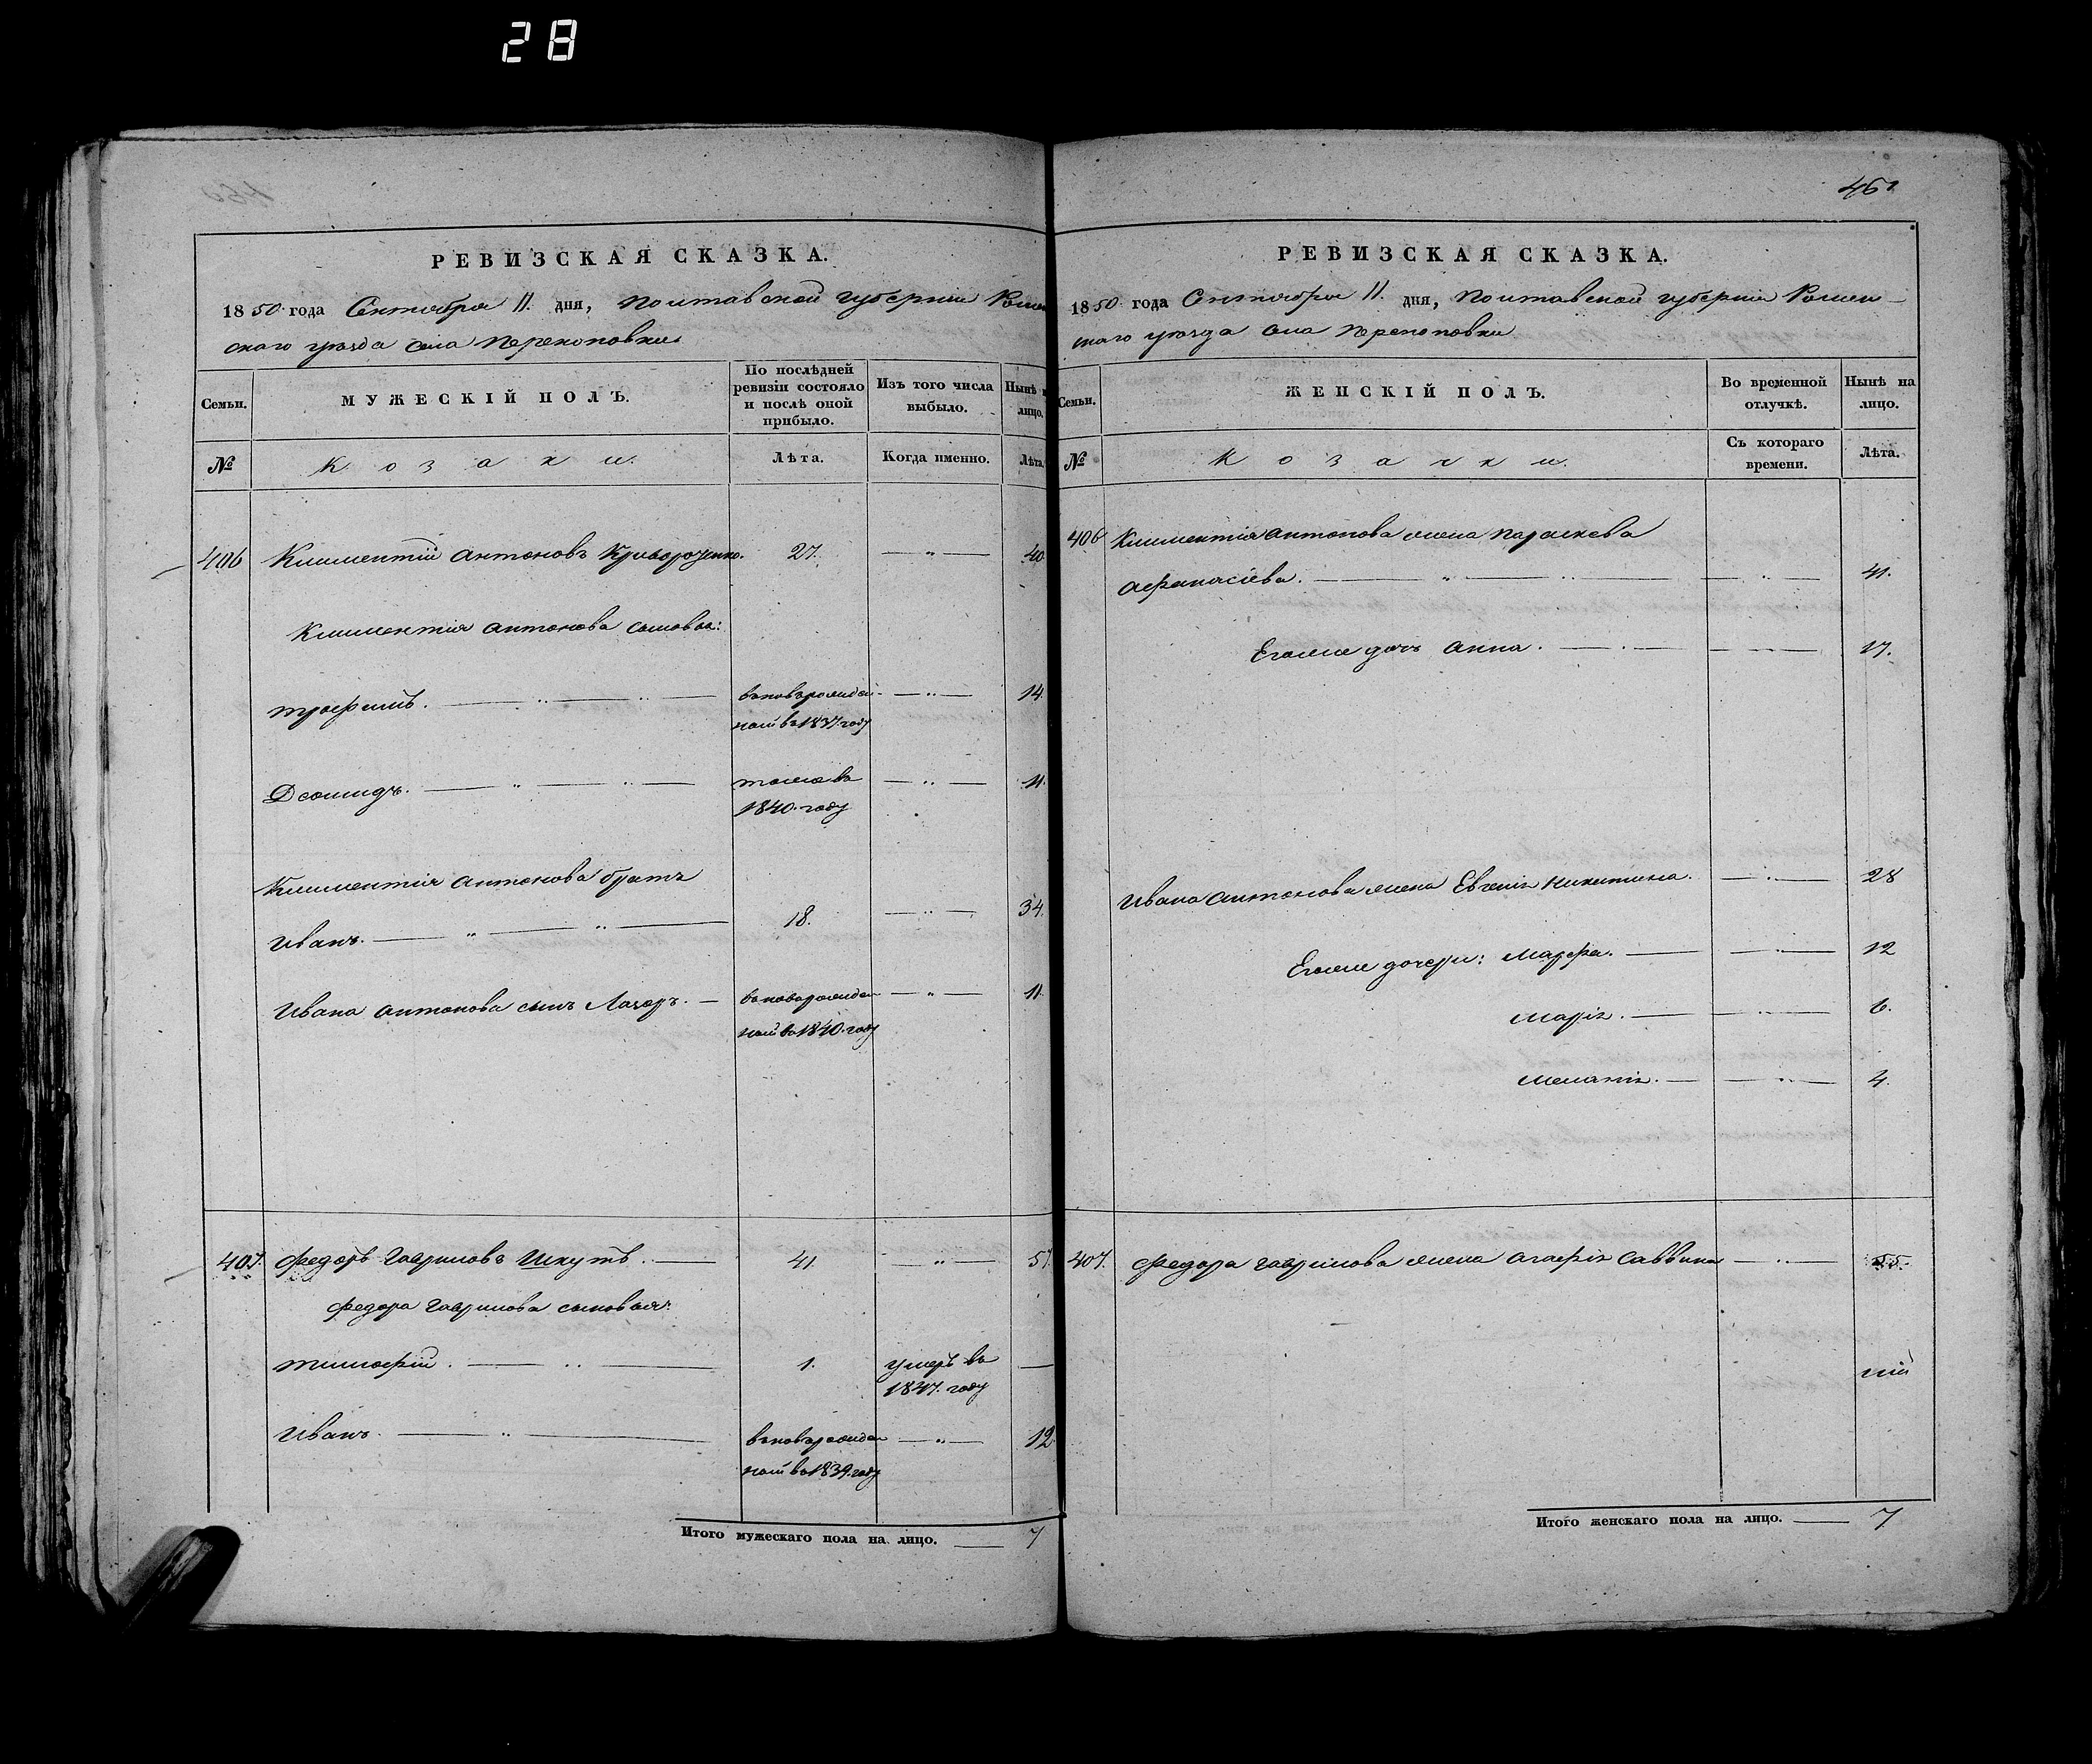 28
РЕВИЗСКАЯ СКАЗКА.
1850 года Сентября 11. дня, Полтавской губернии Ромен
скаго уѣзда села Перекоповки
Семьи.
МУЖЕСКІЙ ПОЛЪ.
По послѣдней ревизіи состояло и послѣ оной прибыло.
Изъ того числа выбыло.
Нынѣ на лицо.
№
Козаки.
Лѣта.
Когда именно.
Лѣта.
406 Климентій Антоновъ Криворученко. 27. — " — 40
Климентія Антонова сыновья:
Трофимъ. — " — " — вновьрожден- — " — 14.
ной въ 1837. году
Діомидъ. — " — " — тоже въ — " — 11.
1840. году
Климентія Антонова братъ
Иванъ. — " — " — 18. — " — 34.
Ивана Антонова сынъ Лазарь. — вновьрожден- — " — 11.
ной въ 1840. году
407. Федоръ Гавриловъ Шкутъ. — 41 — " — 57.
Федора Гаврилова сыновья:
Тимофій. — " — 1. умеръ въ —
1847. году
Иванъ. — " — вновьрожден — " — 12
ной въ 1839. году
Итого мужескаго пола на лицо. — 7
461
РЕВИЗСКАЯ СКАЗКА.
1850 года Сентября 11. дня, Полтавской губерніи Ромен-
скаго уѣзда села Перекоповки
Семьи.
ЖЕНСКІЙ ПОЛЪ.
Во временной отлучкѣ.
Нынѣ на лицо.
№
Козачки.
Съ котораго времени.
Лѣта.
406 Климентія Антонова жена Параскева
Афанасіева. — " — " — — " — 41.
Егоже дочь Анна. — " — — " — 17.
Ивана Антонова жена Евгенія Никитина. — " — 28
Егоже дочери: Марфа. — — " — 12
Марія. — — " — 6.
Меланія. — — " — 4.
407. Федора Гаврилова жена Агафія Саввина — " — 55.
Итого женскаго пола на лицо. — 7